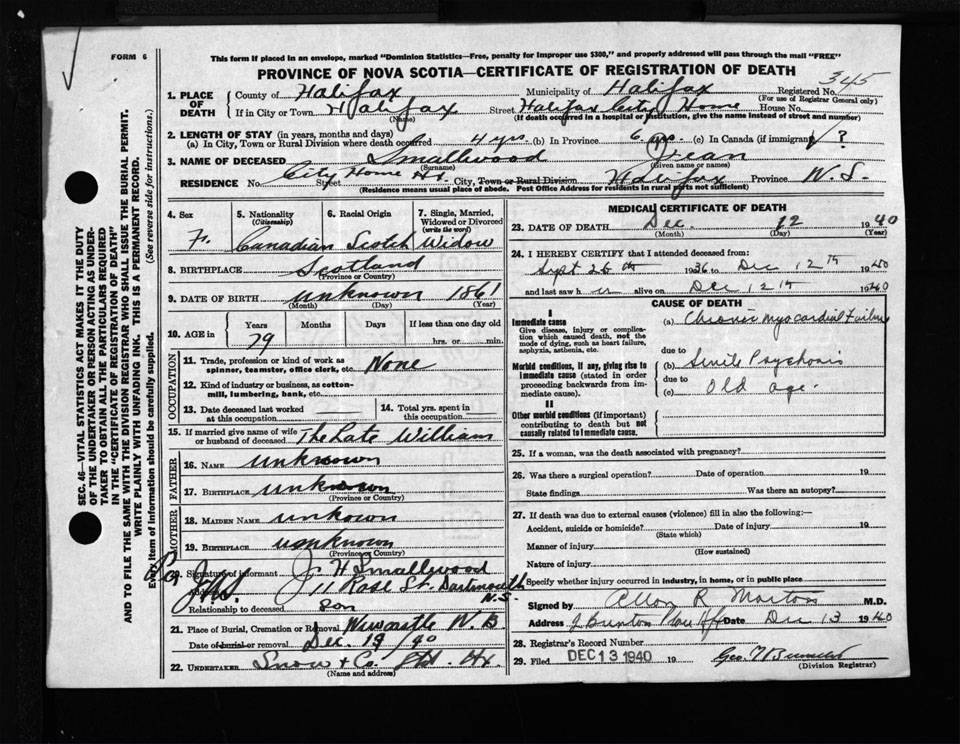 FORM 6
This form if placed in an envelope, marked "Dominion Statistics—Free, penalty for improper use $300," and properly addressed will pass through the mail "FREE"
PROVINCE OF NOVA SCOTIA—CERTIFICATE OF REGISTRATION OF DEATH
345
1. PLACE OF DEATH
County of Halifax Municipality of Halifax Registered No.
(For use of Registrar General only)
If in City or Town Halifax Street Halifax City Home House No.
(Name) (If death occurred in a hospital or institution, give the name instead of street and number)
2. LENGTH OF STAY (in years, months and days)
(a) In City, Town or Rural Division where death occurred 4 yrs. (b) In Province 6 (c) In Canada (if immigrant) ?
3. NAME OF DECEASED Smallwood Jean
(Surname) (Given name or names)
RESIDENCE No. City Home Hx. Street City, Town or Rural Division Halifax Province N.S.
(Residence means usual place of abode. Post Office Address for residents in rural parts not sufficient)
4. Sex F.
5. Nationality (Citizenship) Canadian
6. Racial Origin Scotch
7. Single, Married, Widowed or Divorced (write the word) Widow
8. BIRTHPLACE Scotland
(Province or Country)
9. DATE OF BIRTH unknown 1861
(Month) (Day) (Year)
10. AGE in Years Months Days If less than one day old
79 hrs. or min.
OCCUPATION
11. Trade, profession or kind of work as spinner, teamster, office clerk, etc. None
12. Kind of industry or business, as cotton-mill, lumbering, bank, etc.
13. Date deceased last worked at this occupation
14. Total yrs. spent in this occupation
15. If married give name of wife or husband of deceased The Late William
FATHER
16. NAME unknown
17. BIRTHPLACE unknown
(Province or Country)
MOTHER
18. MAIDEN NAME unkown
19. BIRTHPLACE unknown
(Province or Country)
Signature of informant J. H Smallwood
11 Rose St. Dartmouth
N.S.
Relationship to deceased son
21. Place of Burial, Cremation or Removal Newcastle N.B.
Date of burial or removal Dec. 19/40
22. UNDERTAKER Snow & Co. Hx.
(Name and address)
MEDICAL CERTIFICATE OF DEATH
23. DATE OF DEATH Dec. 12 1940
(Month) (Day) (Year)
24. I HEREBY CERTIFY that I attended deceased from:
Sept 26th 1936 to Dec 12th 1940
and last saw h er alive on Dec 12th 1940
CAUSE OF DEATH
I
Immediate cause
Give disease, injury or complication which caused death, not the mode of dying, such as heart failure, asphyxia, asthenia, etc.
(a) Chronic myocardial Failure
due to
Morbid conditions, if any, giving rise to immediate cause (stated in order proceeding backwards from immediate cause).
(b) Senile Psychosis
due to
(c) Old age.
II
Other morbid conditions (if important) contributing to death but not causally related to immediate cause.
25. If a woman, was the death associated with pregnancy?
26. Was there a surgical operation? Date of operation 19
State findings Was there an autopsy?
27. If death was due to external causes (violence) fill in also the following:—
Accident, suicide or homicide? Date of injury 19
(State which)
Manner of injury
(How sustained)
Nature of injury
Specify whether injury occurred in industry, in home, or in public place
Signed by Allan R Morton M.D.
Address Date Dec 13 1940
28. Registrar's Record Number
29. Filed DEC 13 1940 19
(Division Registrar)
SEC. 46—VITAL STATISTICS ACT MAKES IT THE DUTY
OF THE UNDERTAKER OR PERSON ACTING AS UNDERTAKER TO OBTAIN ALL THE PARTICULARS REQUIRED
IN THE "CERTIFICATE OF REGISTRATION OF DEATH"
AND TO FILE THE SAME WITH THE DIVISION REGISTRAR WHO SHALL ISSUE THE BURIAL PERMIT.
WRITE PLAINLY WITH UNFADING INK. THIS IS A PERMANENT RECORD.
Every item of information should be carefully supplied. (See reverse side for instructions.)